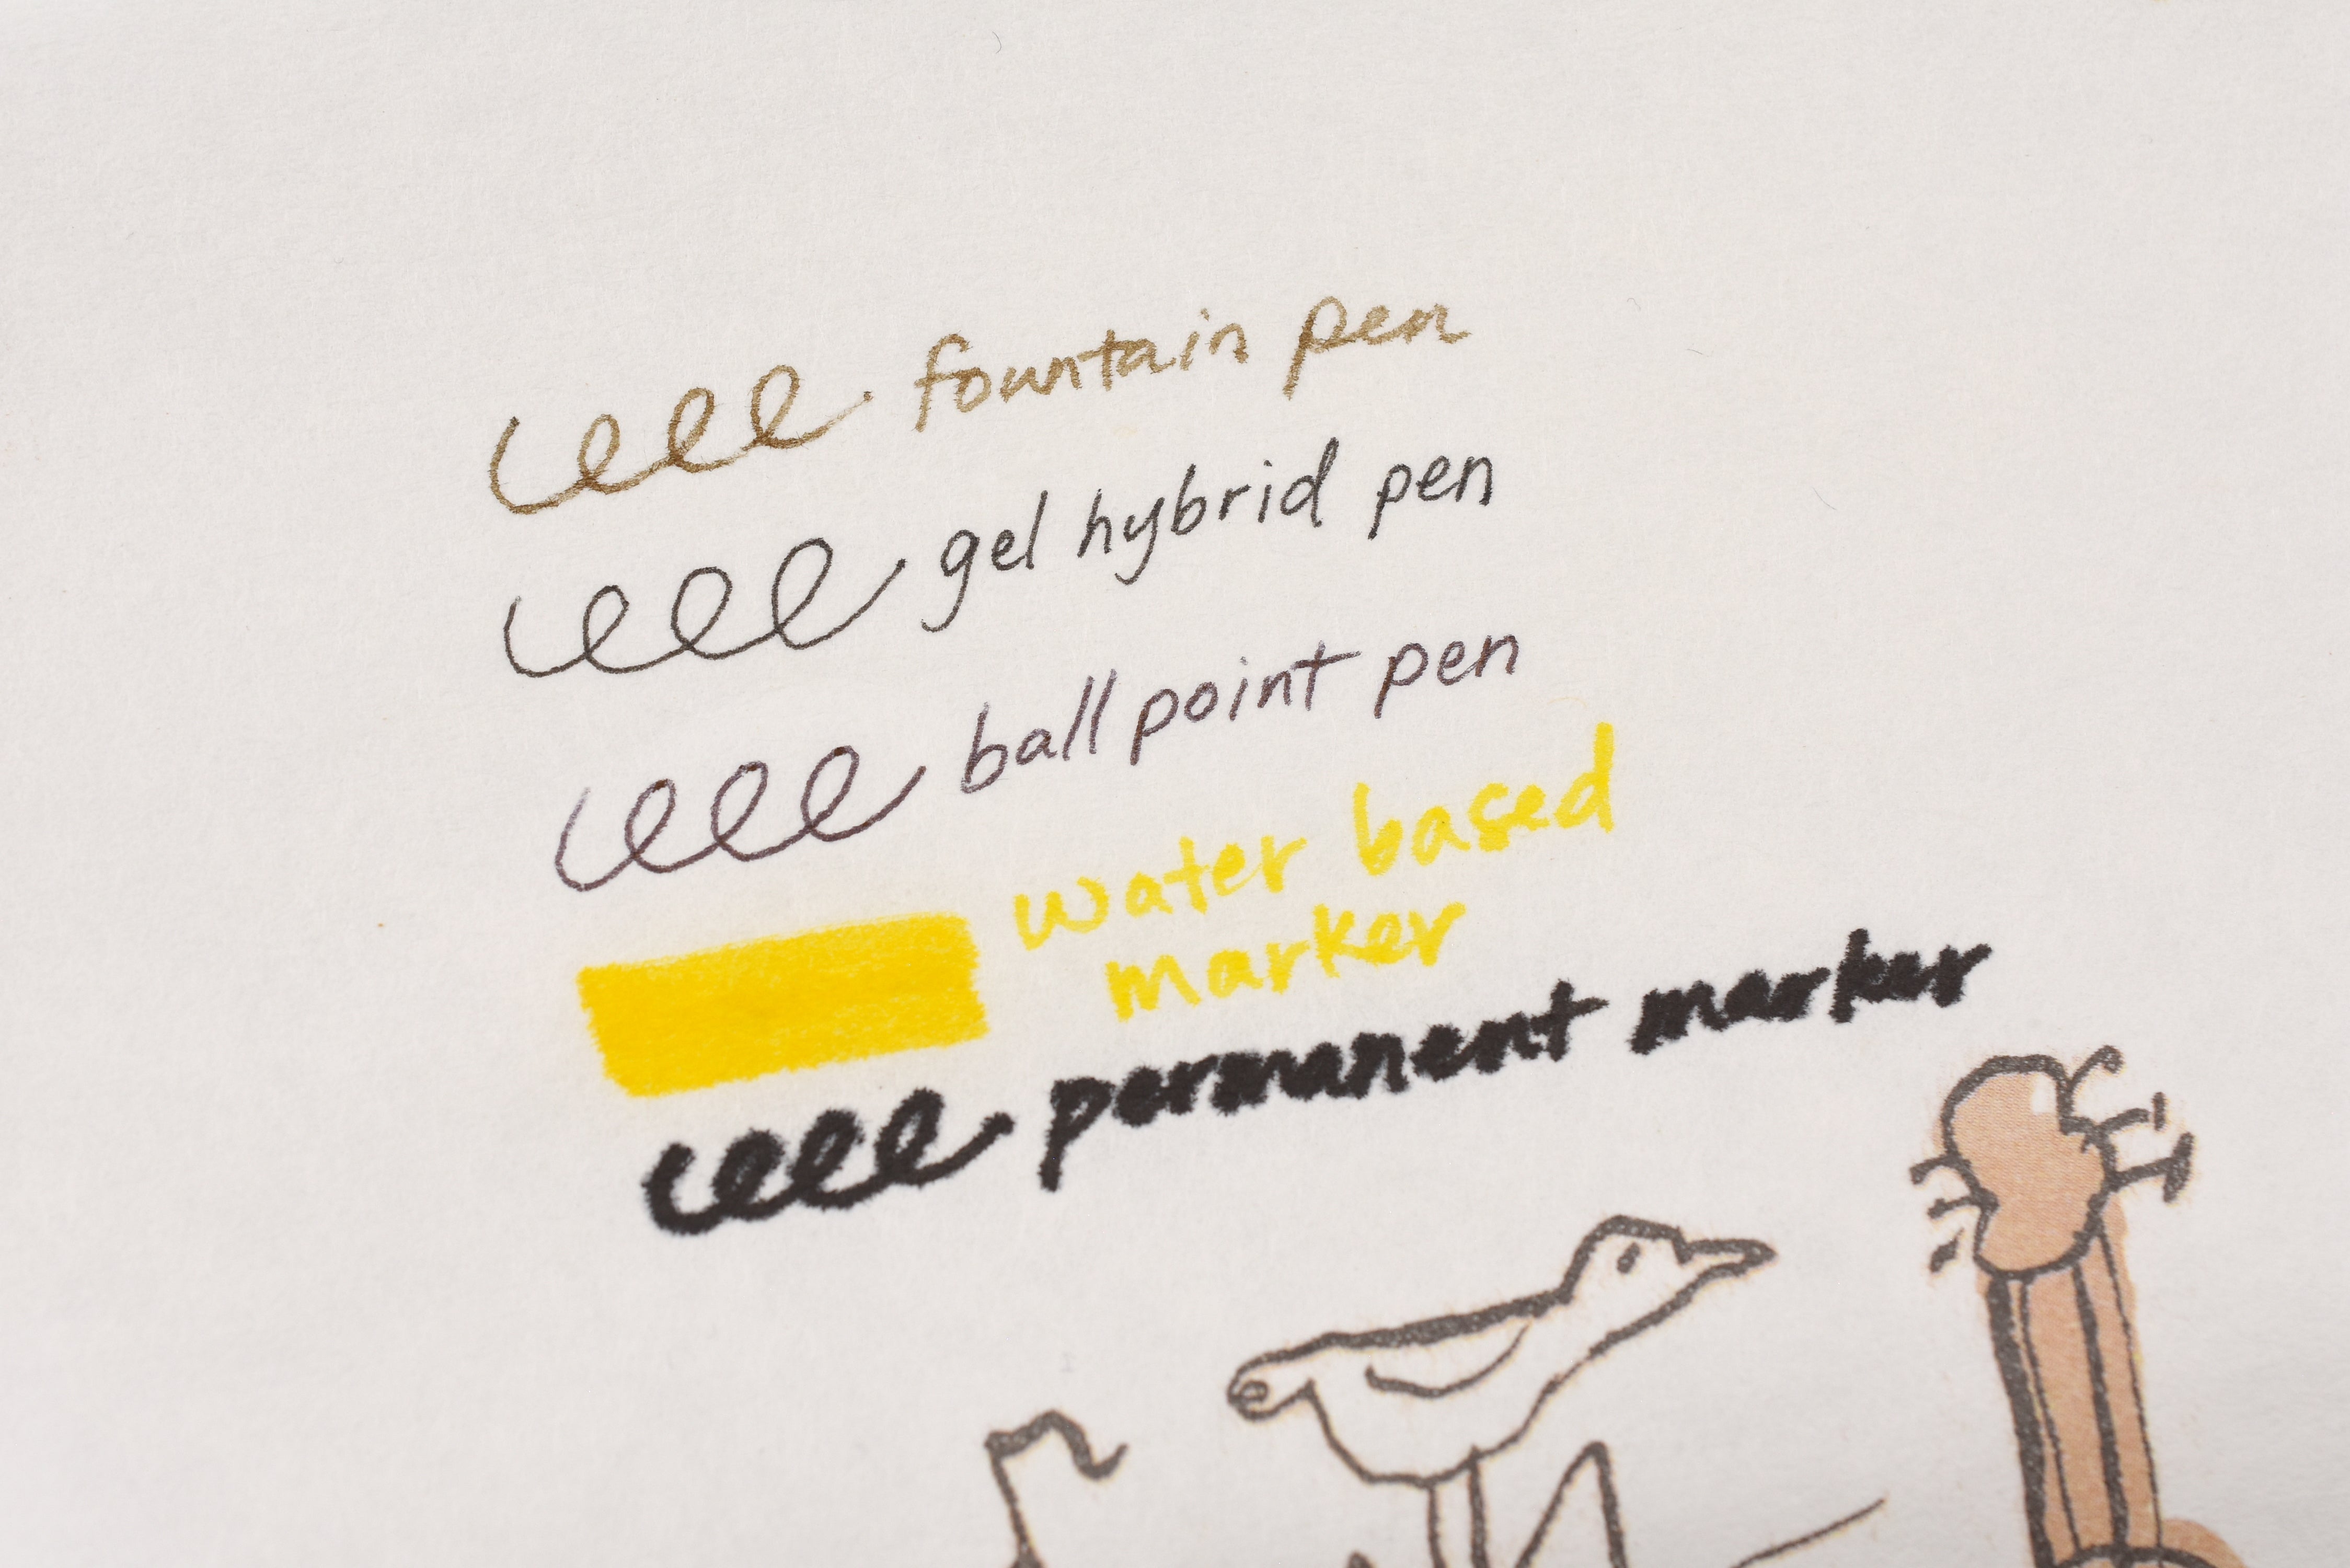 fountain pen
gel hybrid pen
ball point pen
water based
marker
permanent marker